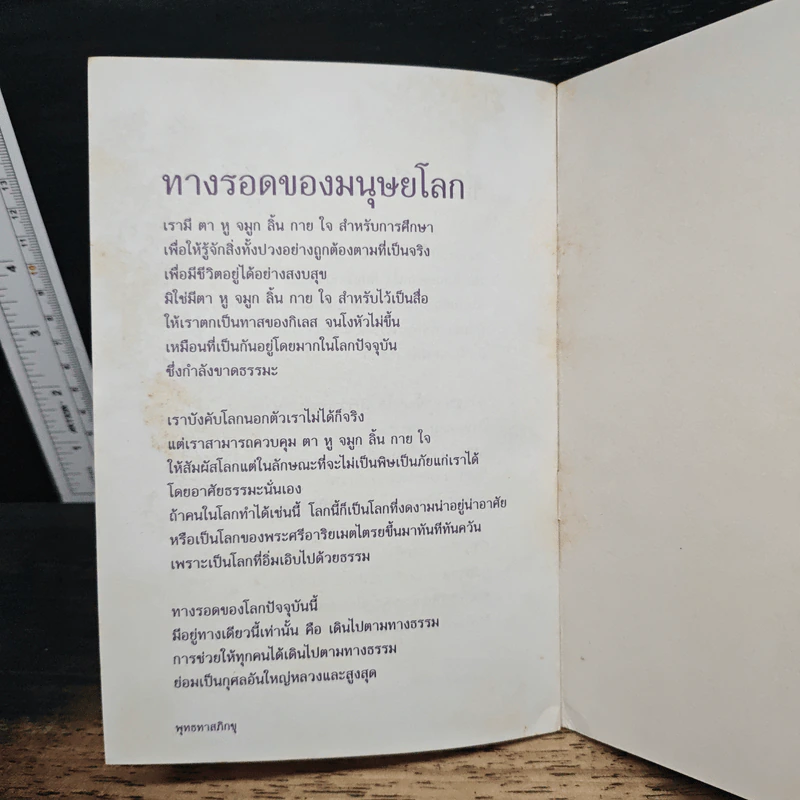 ทางรอดของมนุษยโลก
เรามี ตา หู จมูก ลิ้น กาย ใจ สำหรับการศึกษา
เพื่อให้รู้จักสิ่งทั้งปวงอย่างถูกต้องตามที่เป็นจริง
เพื่อมีชีวิตอยู่ได้อย่างสงบสุข
มิใช่มีตา หู จมูก ลิ้น กาย ใจ สำหรับไว้เป็นสื่อ
ให้เราตกเป็นทาสของกิเลส จนโงหัวไม่ขึ้น
เหมือนที่เป็นกันอยู่โดยมากในโลกปัจจุบัน
ซึ่งกำลังขาดธรรมะ
เราบังคับโลกนอกตัวเราไม่ได้ก็จริง
แต่เราสามารถควบคุม ตา หู จมูก ลิ้น กาย ใจ
ให้สัมผัสโลกแต่ในลักษณะที่จะไม่เป็นพิษเป็นภัยแก่เราได้
โดยอาศัยธรรมะนั่นเอง
ถ้าคนในโลกทำได้เช่นนี้ โลกนี้ก็เป็นโลกที่งดงามน่าอยู่น่าอาศัย
หรือเป็นโลกของพระศรีอาริยเมตไตรยขึ้นมาทันทีทันควัน
เพราะเป็นโลกที่อิ่มเอิบไปด้วยธรรม
ทางรอดของโลกปัจจุบันนี้
มีอยู่ทางเดียวนี้เท่านั้น คือ เดินไปตามทางธรรม
การช่วยให้ทุกคนได้เดินไปตามทางธรรม
ย่อมเป็นกุศลอันใหญ่หลวงและสูงสุด
พุทธทาสภิกขุ